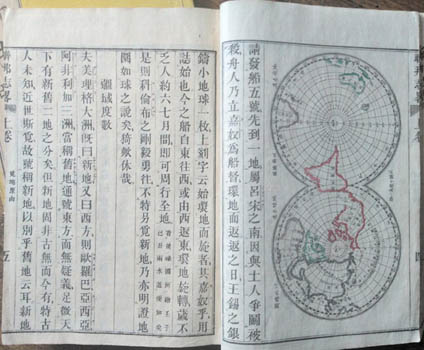 請發船五號先到一地屬呂宋之南因與土人爭鬭被
殺舟人乃立嘉奴為船督環地而返返之日王錫之銀
鑄小地球一枚上刻字云始環地而旋者其嘉奴乎用
誌始也今之船自東往西或由西返東環地旋轉歲不
乏人約六七月間即可周行全地
是則科倫布之剛毅勇往不特另覓新地乃亦明證地
圓如球之說矣猗歟休哉
疆域度數
夫美理格大洲既曰新地又曰西方則歐羅巴亞西亞
阿非利加三洲當稱舊地通號東方而無疑義足徵天
下有新舊二地之分矣但新地固非古無而今有特古
人未知近世斯覓故號稱新地以別乎舊地云耳新
聯邦志畧 上卷
五